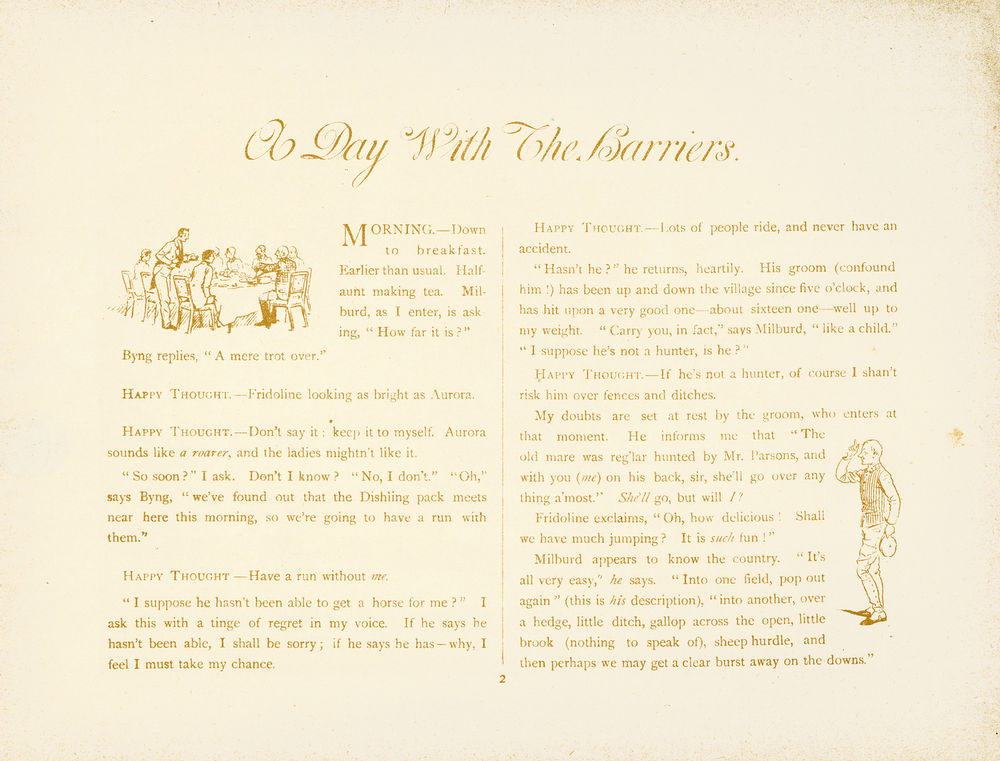 A Day With The Barriers.
MORNING.—Down
to breakfast.
Earlier than usual. Half-
aunt making tea. Mil-
burd, as I enter, is ask
ing, “How far it is?”
Byng replies, “A mere trot over.”
HAPPY THOUGHT.—Fridoline looking as bright as Aurora.
HAPPY THOUGHT.—Don't say it; keep it to myself. Aurora
sounds like a roarer, and the ladies mightn't like it.
“So soon?” I ask. Don't I know? “No, I don't.” “Oh,”
says Byng, “we've found out that the Dishling pack meets
near here this morning, so we're going to have a run with
them.”
HAPPY THOUGHT—Have a run without me.
“I suppose he hasn't been able to get a horse for me?” I
ask this with a tinge of regret in my voice. If he says he
hasn't been able, I shall be sorry; if he says he has—why, I
feel I must take my chance.
HAPPY THOUGHT.—Lots of people ride, and never have an
accident.
“Hasn't he?” he returns, heartily. His groom (confound
him!) has been up and down the village since five o'clock, and
has hit upon a very good one—about sixteen one—well up to
my weight. “Carry you, in fact,” says Milburd, “like a child.”
“I suppose he's not a hunter, is he?”
HAPPY THOUGHT.—If he's not a hunter, of course I shan't
risk him over fences and ditches.
My doubts are set at rest by the groom, who enters at
that moment. He informs me that “The
old mare was reg'lar hunted by Mr. Parsons, and
with you (me) on his back, sir, she'll go over any
thing a'most.” She'll go, but will I?
Fridoline exclaims, “Oh, how delicious! Shall
we have much jumping? It is such fun!”
Milburd appears to know the country. “It's
all very easy,” he says. “Into one field, pop out
again” (this is his description), “into another, over
a hedge, little ditch, gallop across the open, little
brook (nothing to speak of), sheep hurdle, and
then perhaps we may get a clear burst away on the downs.”
2